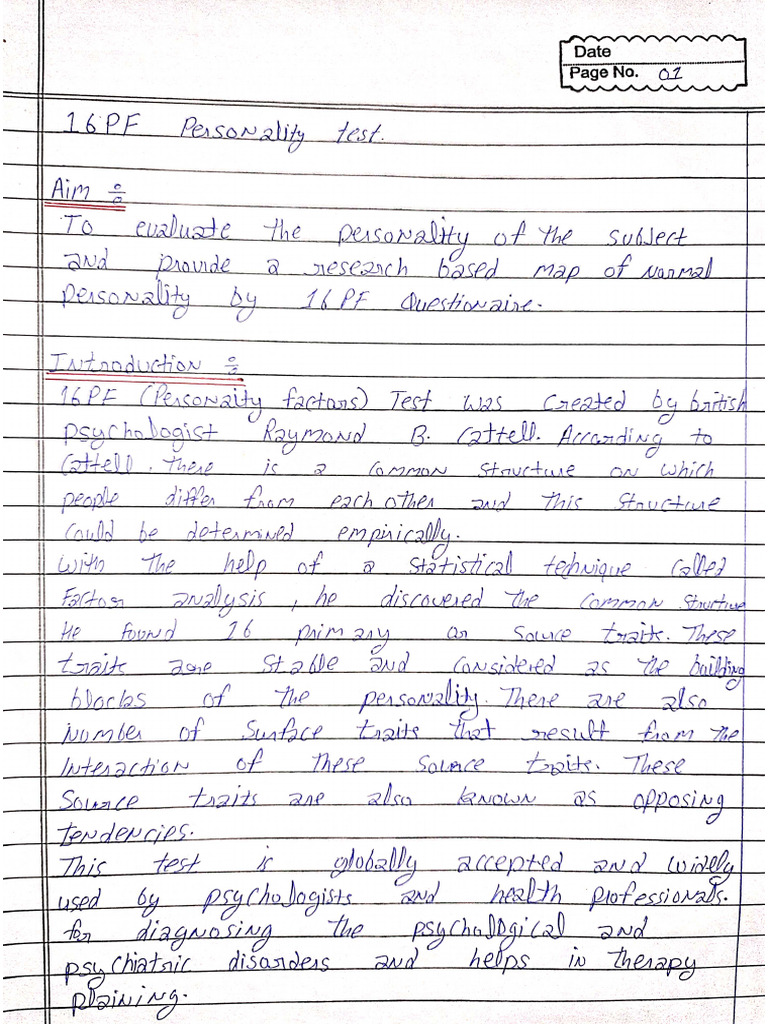 Date
Page No. 01
16PF Personality test.
Aim :-
To evaluate the personality of the subject
and provide a research based map of normal
personality by 16PF Questionaire.
Introduction :-
16PF (Personaity factors) Test was created by british
psychologist Raymond B. Cattell. According to
Cattell. There is a common structure on which
people differ from each other and this structure
could be determined empirically.
With the help of a statistical technique called
Factor analysis, he discovered the common structure
He found 16 primary or source traits. These
traits are stable and considered as the building
blocks of the personality. There are also
number of surface traits that result from the
Interaction of these source traits. These
Source traits are also known as opposing
tendencies.
This test is globally accepted and widely
used by psychologists and health professionals.
for diagnosing the psychological and
psychiatric disorders and helps in therapy
plaining.